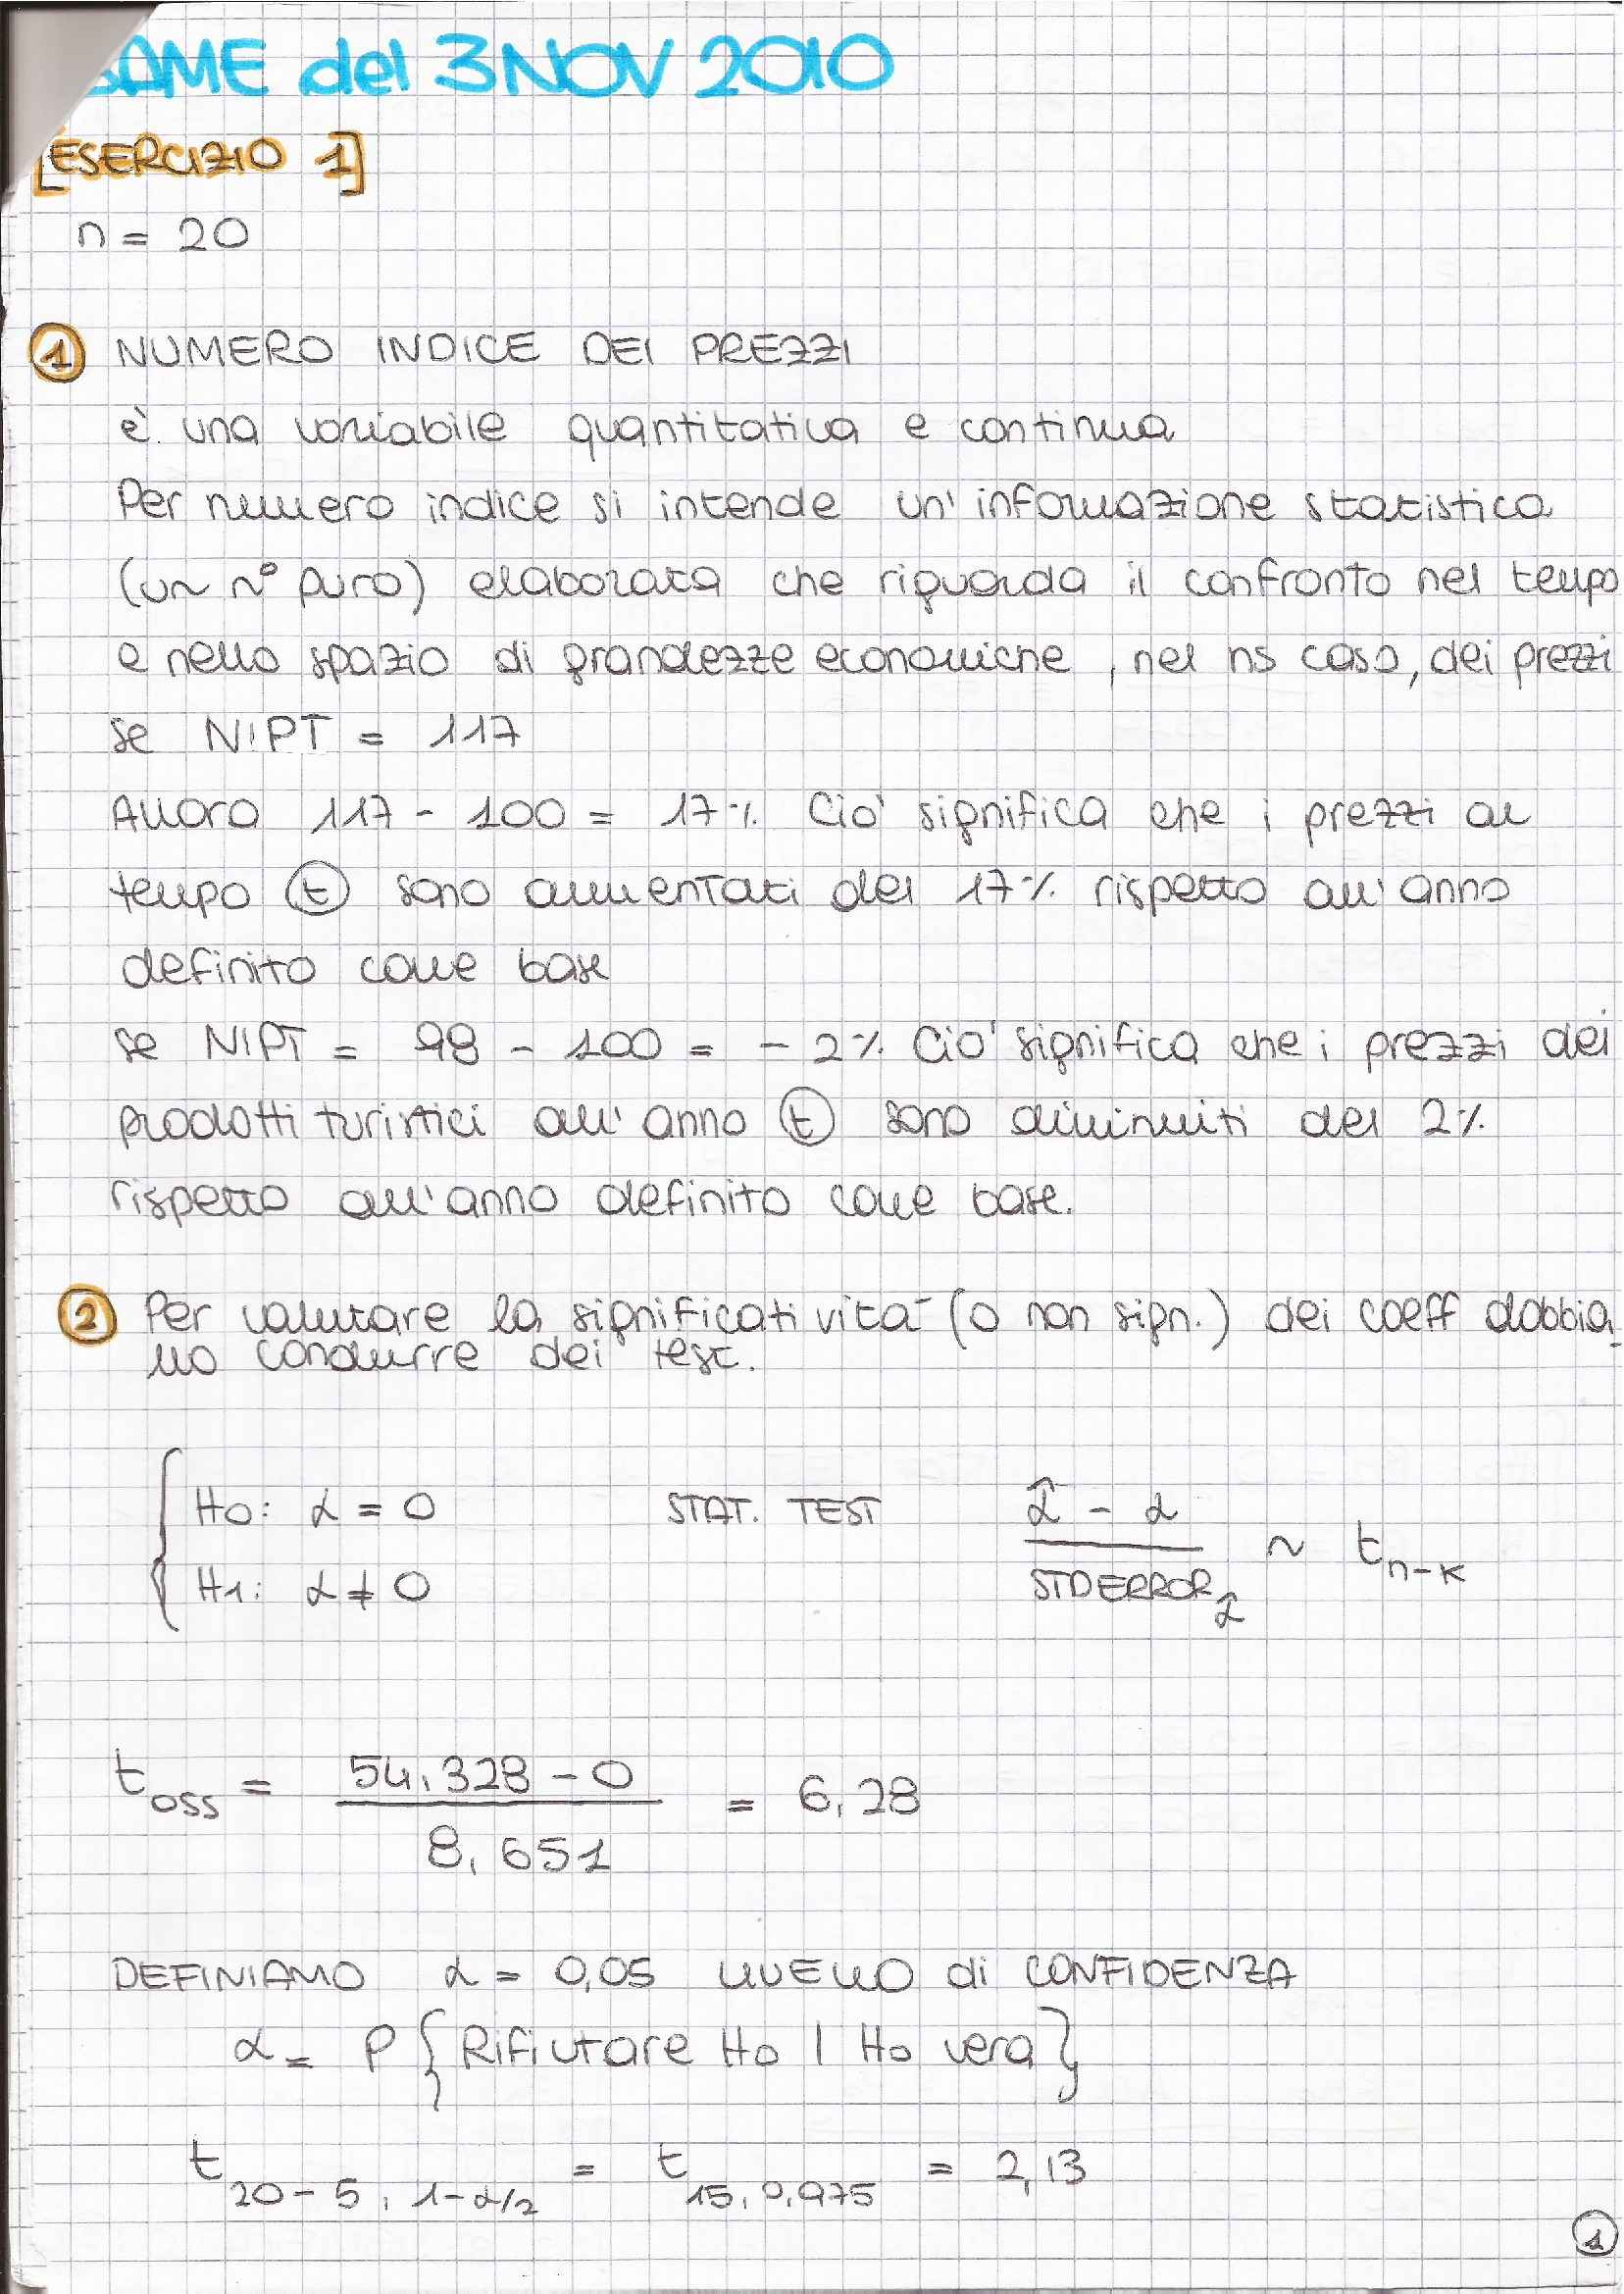 SAME del 3 NOV 2010
[ESERCIZIO 1]
n = 20
1 NUMERO INDICE DEI PREZZI
è una variabile quantitativa e continua
Per numero indice si intende un'informazione statistica
(un n° puro) elaborata che riguarda il confronto nel tempo
e nello spazio di grandezze economiche, nel ns caso, dei prezzi
se NIPT = 117
Allora 117 - 100 = 17% Ciò significa che i prezzi al
tempo t sono aumentati del 17% rispetto all'anno
definito come base
se NIPT = 98 - 100 = - 2% Ciò significa che i prezzi dei
prodotti turistici all'anno t sono diminuiti del 2%
rispetto all'anno definito come base.
2 Per valutare la significatività (o non sign.) dei coeff dobbia-
mo condurre dei test.
{ H0: α = 0 STAT. TEST α̂ - α / STDERROR α̂ ~ t n-k
H1: α ≠ 0
t oss = 54,328 - 0 / 8,651 = 6,28
DEFINIAMO α = 0,05 LIVELLO di CONFIDENZA
α = P { Rifiutare H0 | H0 vera }
t 20-5, 1-α/2 = t 15, 0,975 = 2,13
1